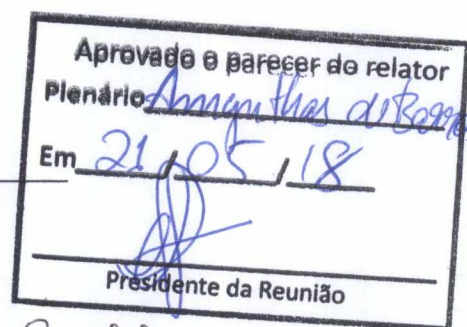 Aprovado o parecer do relator
Plenário Amynthas de Barros
Em 21 / 05 / 18
Presidente da Reunião